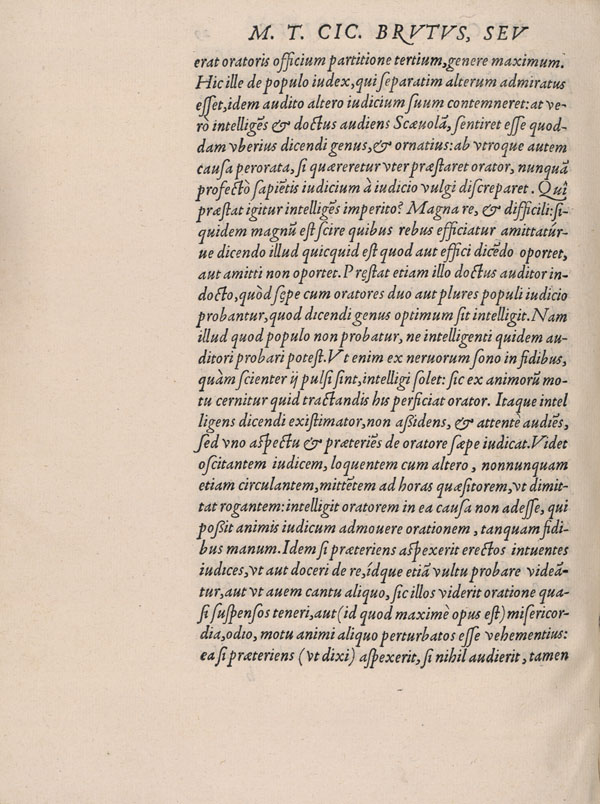 M. T. CIC. BRVTVS, SEV
erat oratoris officium partitione tertium, genere maximum.
Hic ille de populo iudex, qui ſeparatim alterum admiratus
eſſet, idem audito altero iudicium ſuum contemneret: at ve-
rò intelligẽs & doctus audiens Scæuolã, ſentiret eſſe quod-
dam vberius dicendi genus, & ornatius: ab vtroque autem
cauſa perorata, ſi quæreretur vter præſtaret orator, nunquã
profectò ſapiẽtis iudicium à iudicio vulgi diſcreparet. Quî
præſtat igitur intelligẽs imperito? Magna re, & difficili: ſi-
quidem magnũ eſt ſcire quibus rebus efficiatur amittatúr-
ue dicendo illud quicquid eſt quod aut effici dicẽdo oportet,
aut amitti non oportet. Pręſtat etiam illo doctus auditor in-
docto, quòd ſępe cum oratores duo aut plures populi iudicio
probantur, quod dicendi genus optimum ſit intelligit. Nam
illud quod populo non probatur, ne intelligenti quidem au-
ditori probari poteſt. Vt enim ex neruorum ſono in fidibus,
quàm ſcienter ij pulſi ſint, intelligi ſolet: ſic ex animorũ mo-
tu cernitur quid tractandis his perficiat orator. Itaque intel
ligens dicendi exiſtimator, non aßidens, & attentè audiẽs,
ſed vno aſpectu & præteriẽs de oratore ſæpe iudicat. Videt
oſcitantem iudicem, loquentem cum altero, nonnunquam
etiam circulantem, mittẽtem ad horas quæſitorem, vt dimit-
tat rogantem: intelligit oratorem in ea cauſa non adeſſe, qui
poßit animis iudicum admouere orationem, tanquam fidi-
bus manum. Idem ſi præteriens aſpexerit erectos intuentes
iudices, vt aut doceri de re, ídque etiã vultu probare videã-
tur, aut vt auem cantu aliquo, ſic illos viderit oratione qua-
ſi ſuſpenſos teneri, aut (id quod maximè opus eſt) miſericor-
dia, odio, motu animi aliquo perturbatos eſſe vehementius:
ea ſi præteriens (vt dixi) aſpexerit, ſi nihil audierit, tamen